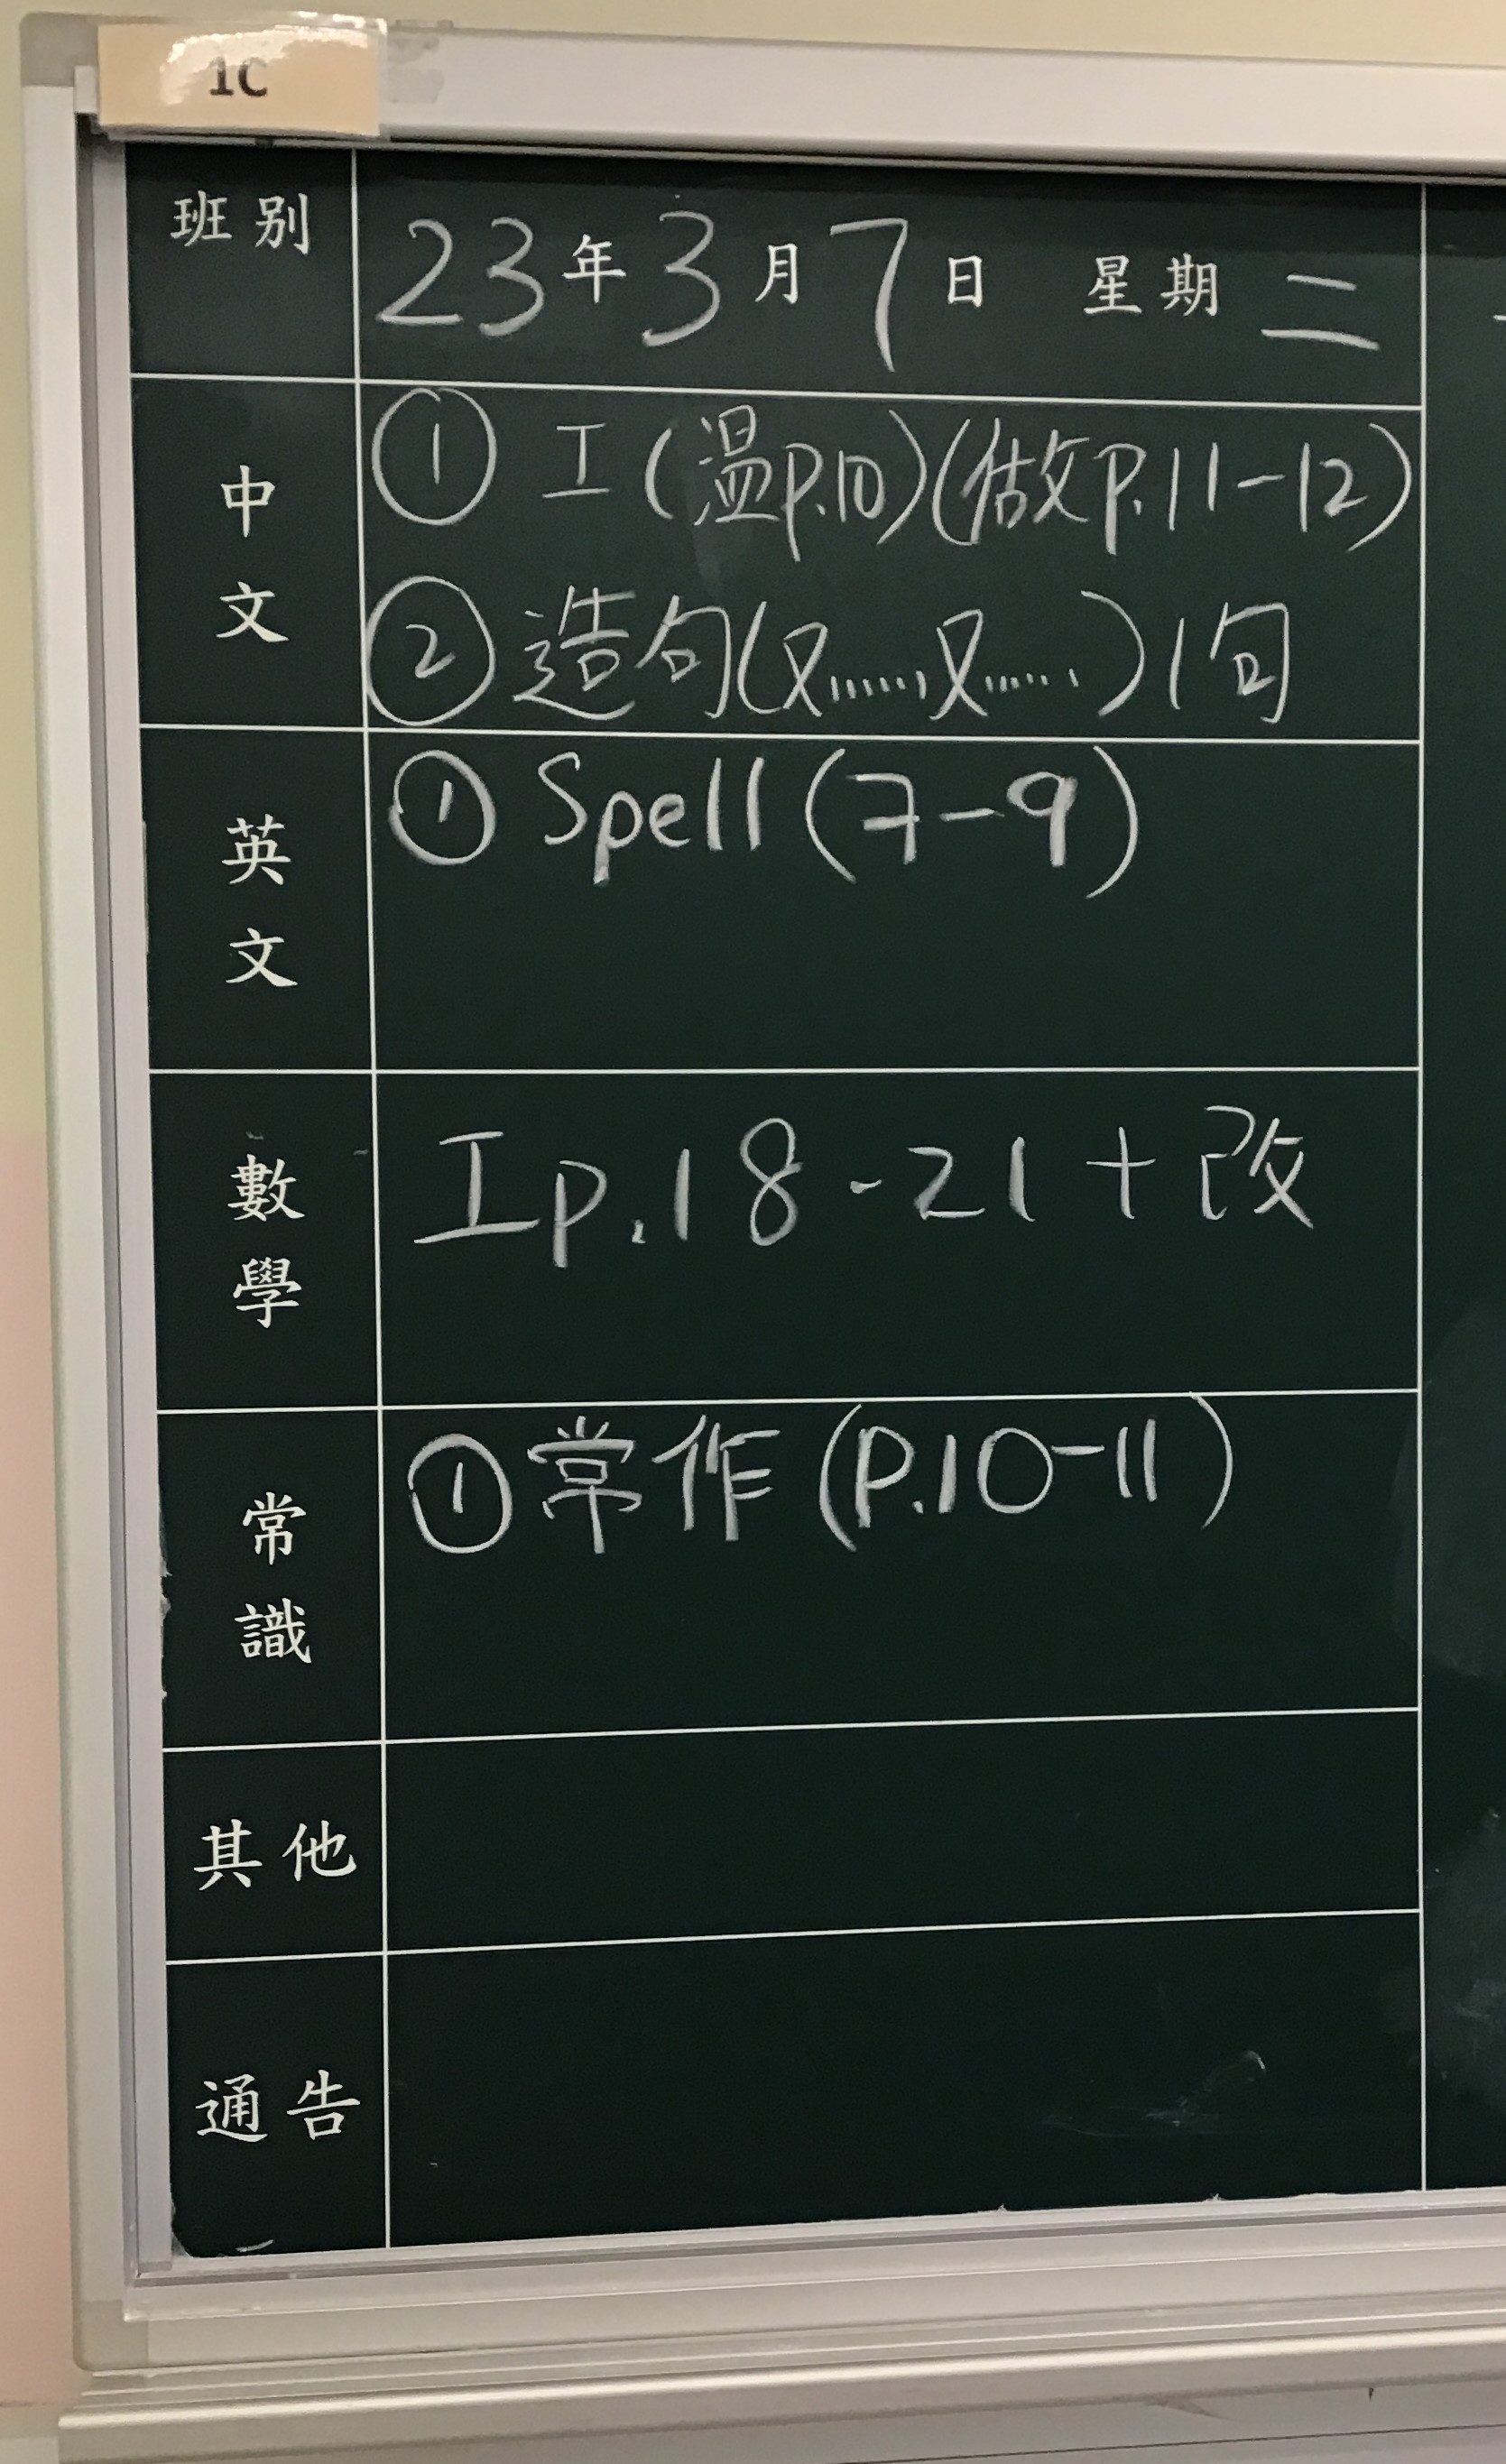 1C
班别
23年3月7日 星期二
中文
① 工(温p.10)(做p.11-12)
② 造句(又......又......)1句
英文
① Spell (7-9)
數學
工p.18-21+改
常識
① 常作(p.10-11)
其他
通告